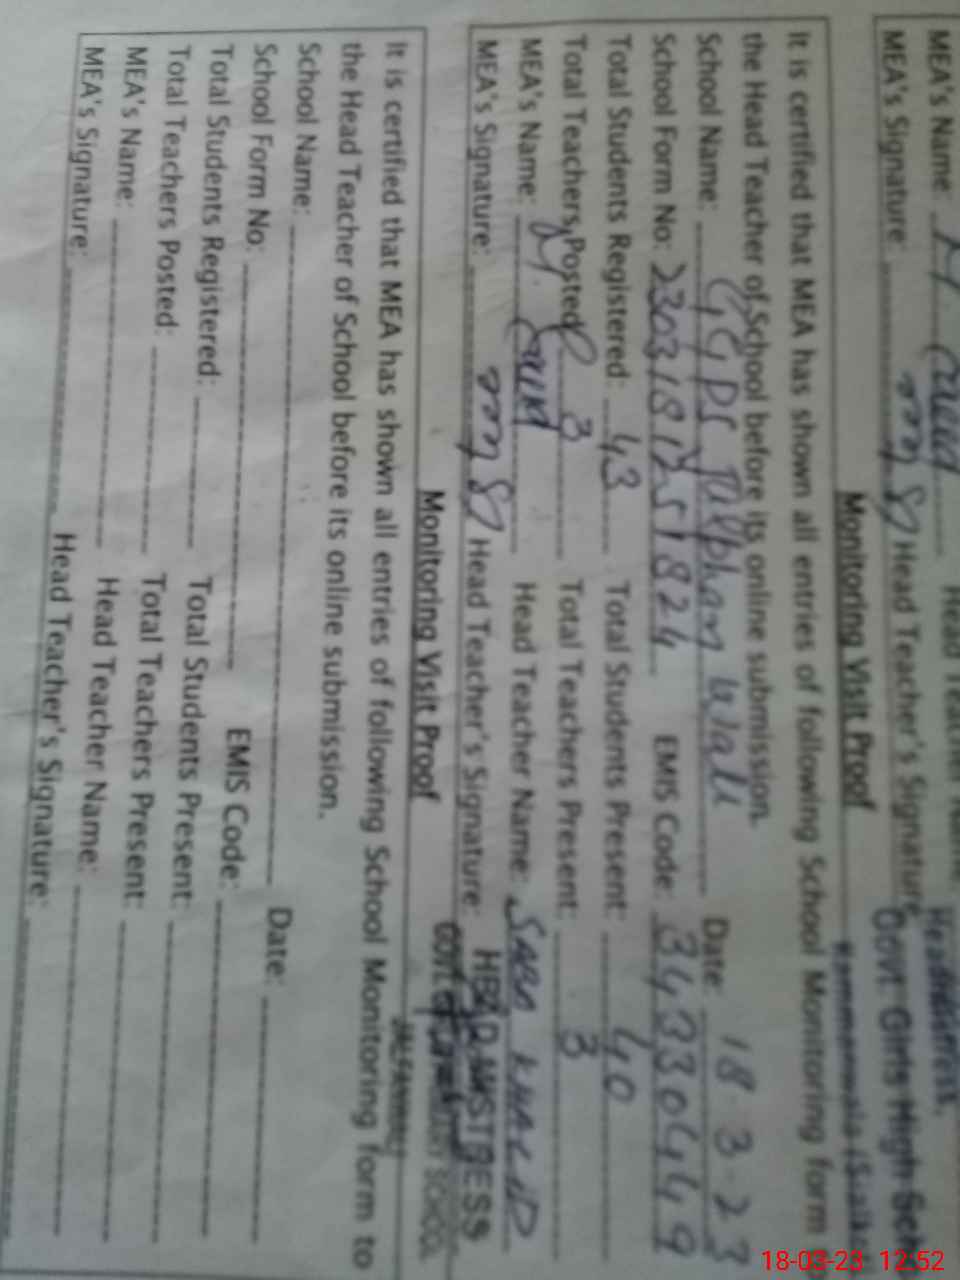 MEA's Name:
MEA's Signature: Head Teacher's Signature
Headmistress,
Govt. Girls High Sch
Monitoring Visit Proof
It is certified that MEA has shown all entries of following School Monitoring form
the Head Teacher of School before its online submission.
School Name: GGPS Wali Date: 18-3-23
School Form No: EMIS Code: 34330449
Total Students Registered: 43 Total Students Present: 40
Total Teachers Posted: 3 Total Teachers Present: 3
MEA's Name: Head Teacher Name:
MEA's Signature: Head Teacher's Signature:
HEADMISTRESS
Monitoring Visit Proof
It is certified that MEA has shown all entries of following School Monitoring form to
the Head Teacher of School before its online submission.
School Name: Date:
School Form No: EMIS Code:
Total Students Registered: Total Students Present:
Total Teachers Posted: Total Teachers Present:
MEA's Name: Head Teacher Name:
MEA's Signature: Head Teacher's Signature:
18-03-23 12:52